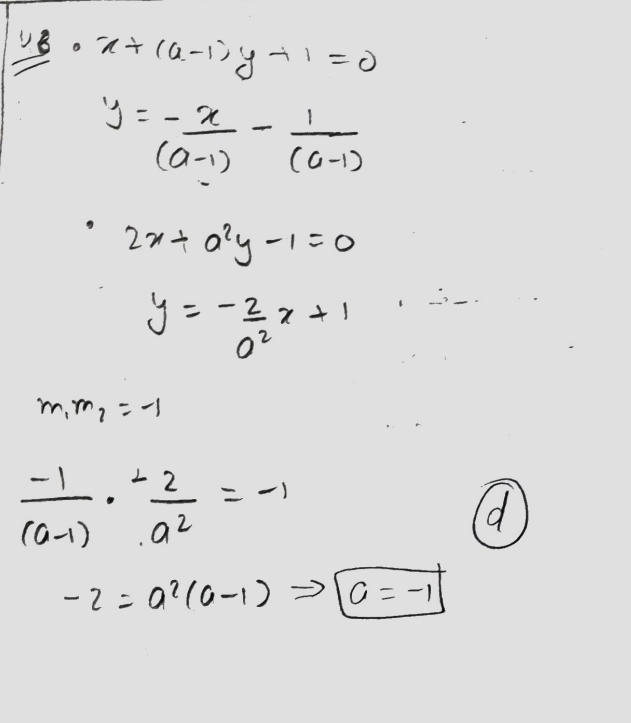 48 • x + (a-1)y + 1 = 0
y = - x/(a-1) - 1/(a-1)
• 2x + a²y - 1 = 0
y = - 2/a² x + 1
m₁m₂ = -1
-1/(a-1) · -2/a² = -1
(d)
-2 = a²(a-1) ⇒ a = -1